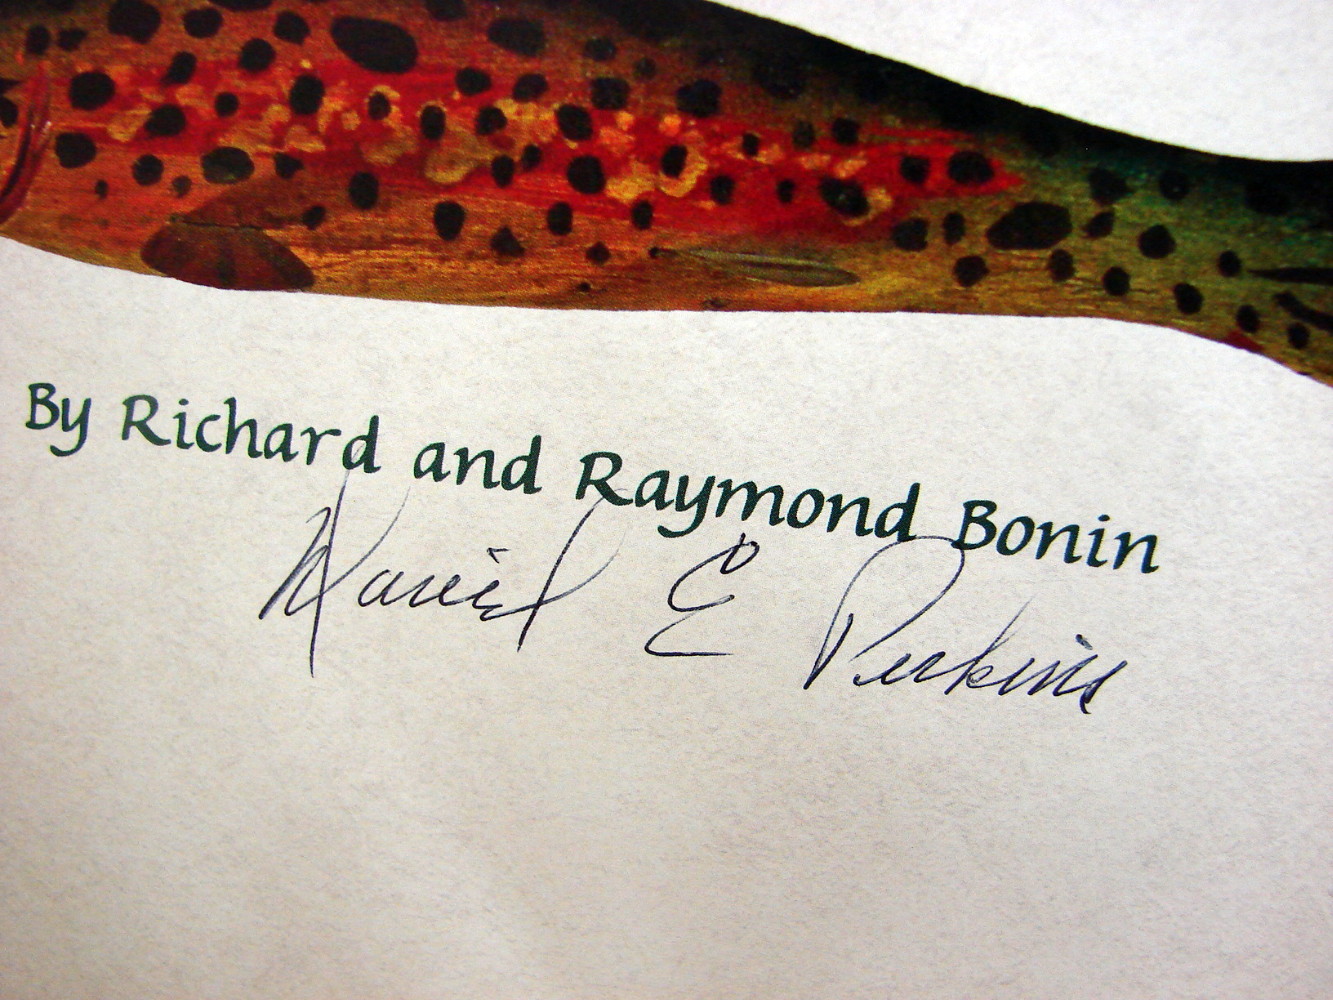 By Richard and Raymond Bonin
E Perkins